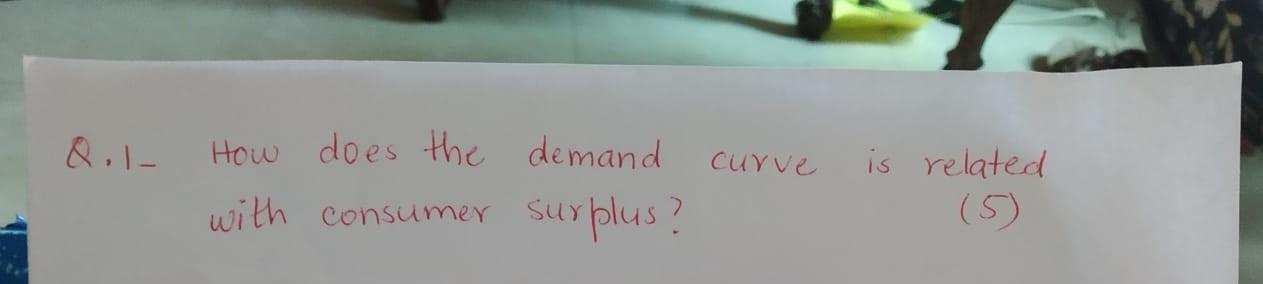 Q.1- How does the demand curve is related
with consumer surplus? (5)